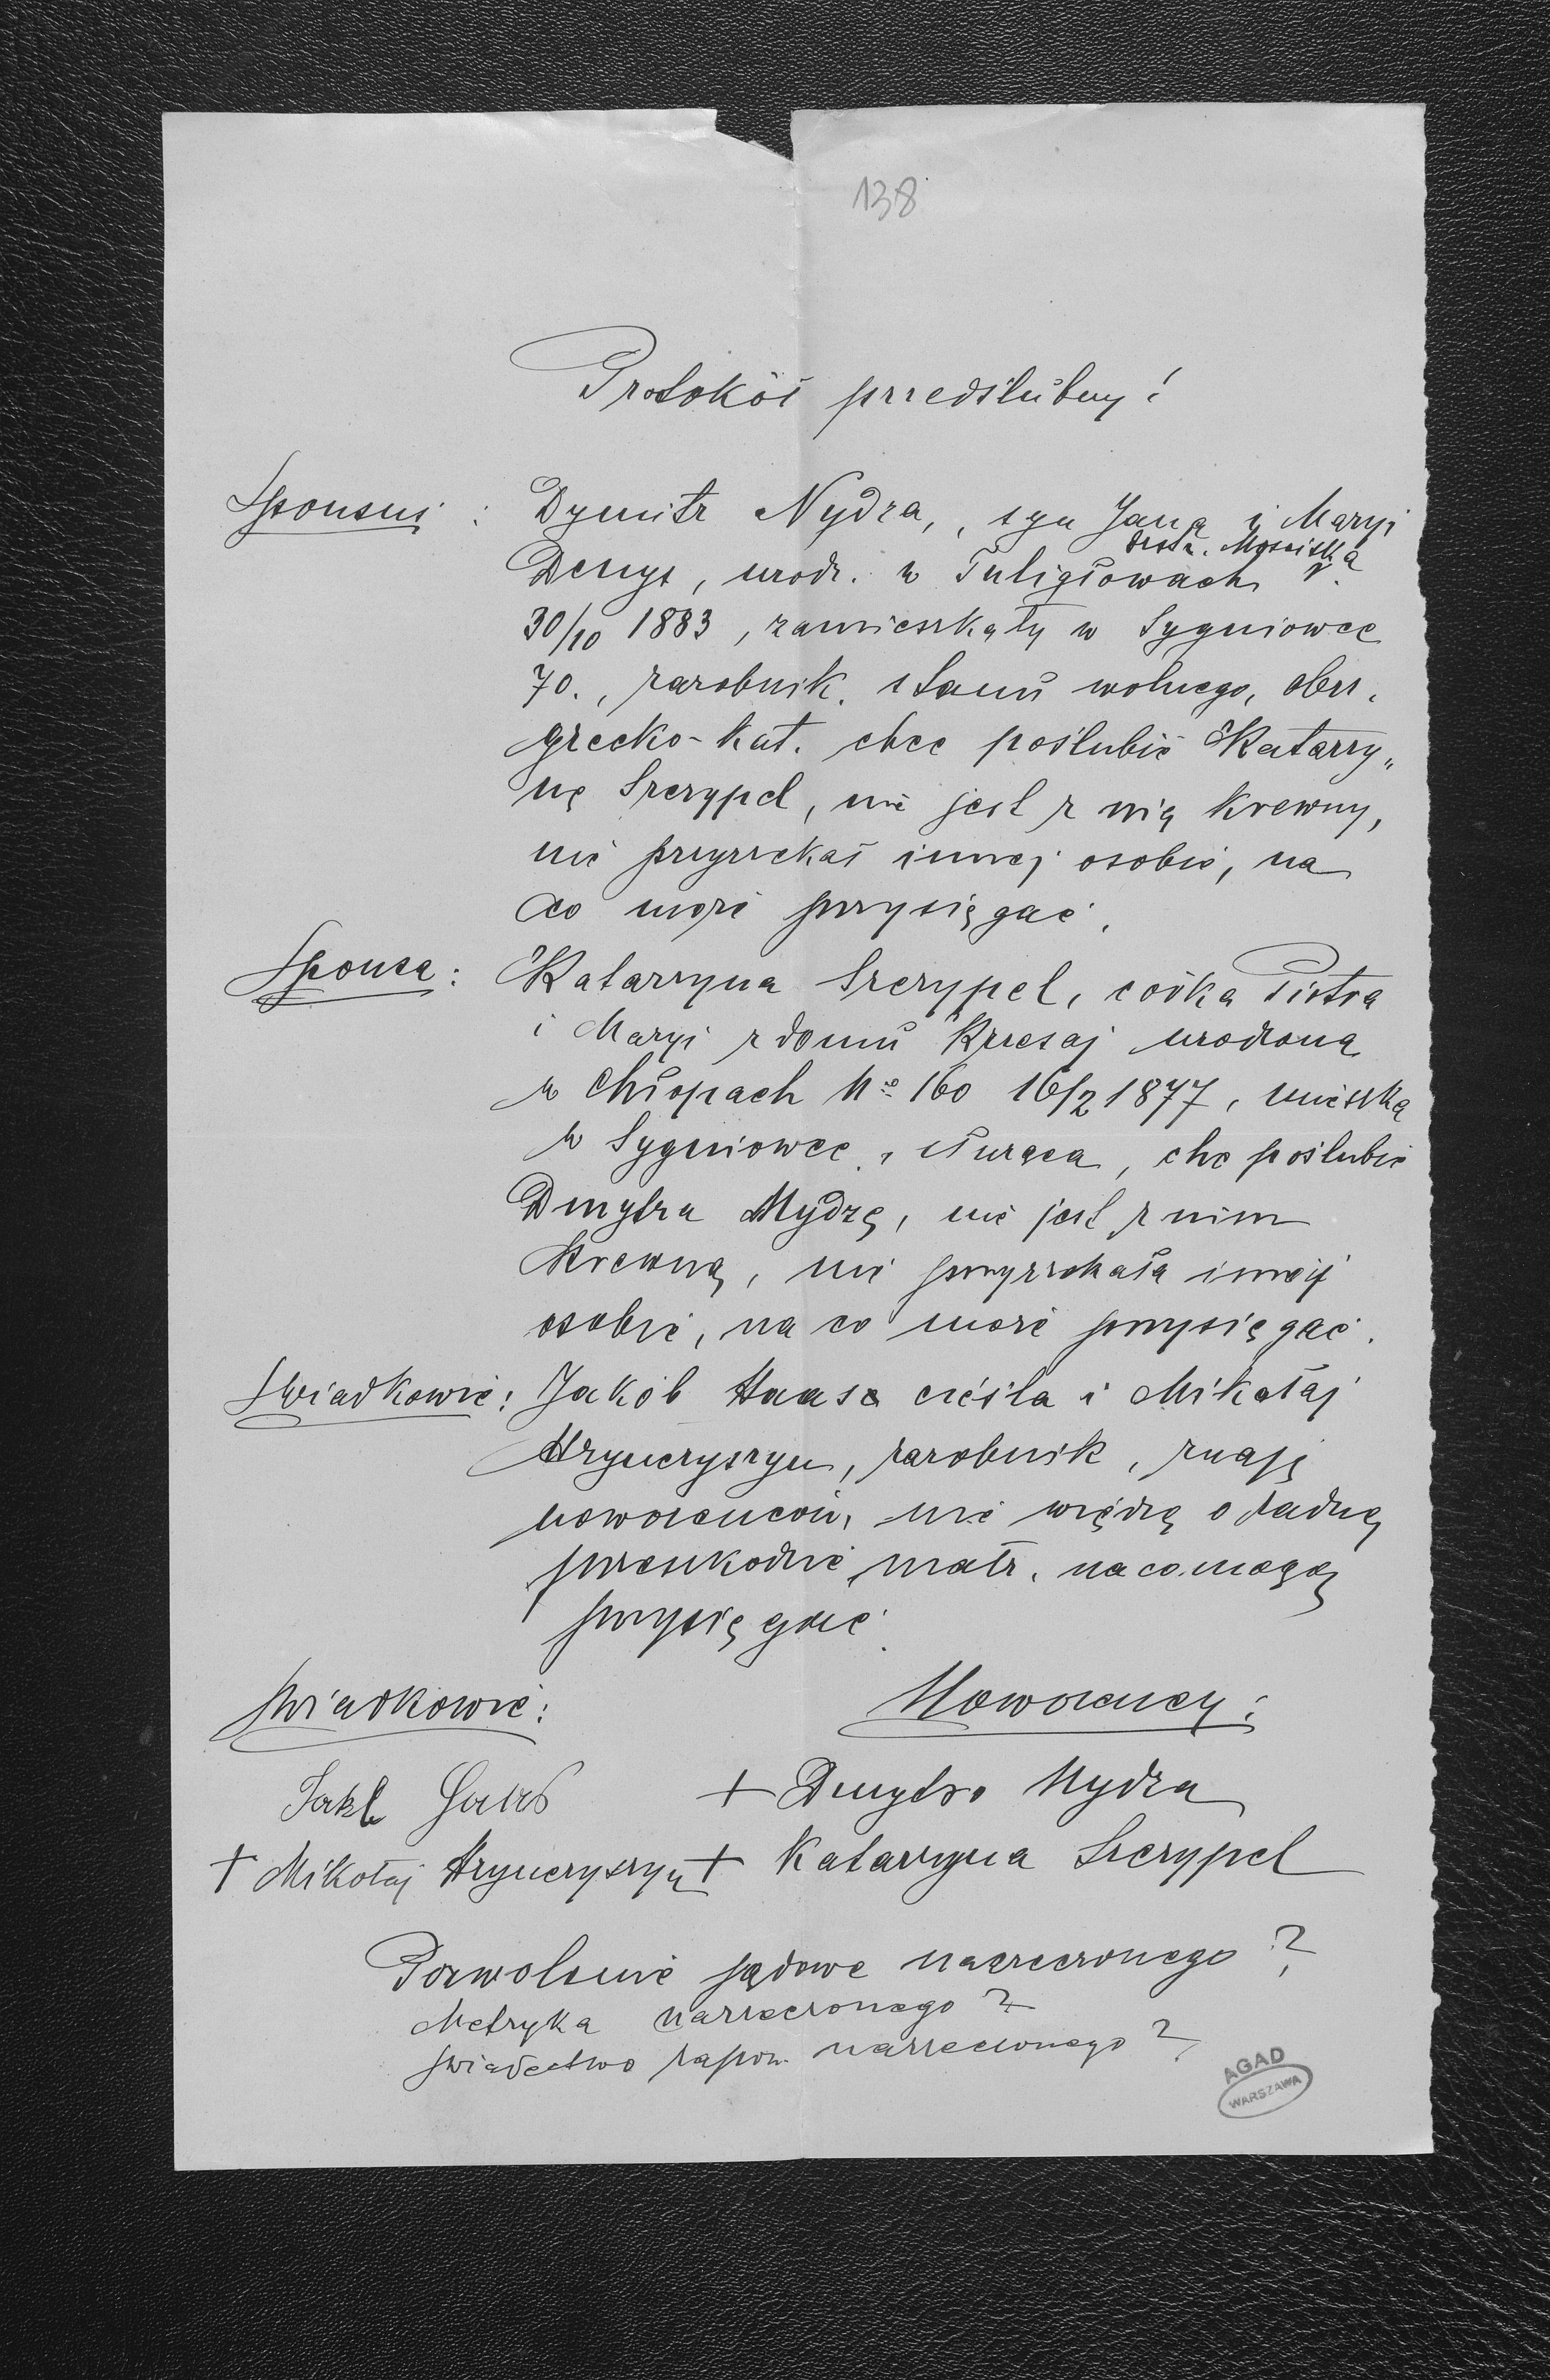 138
Protokół przedślubny:
Sponsus: Dymitr Nydza, syn Jana i Maryi
distr. Mościska
Denys, urodz. w Tuligłowach
30/10 1883, zamieszkały w Sygniowce
70., zarobnik. stanu wolnego, obrz.
grecko-kat. chce poślubić Katarzy„
nę Szczypel, nie jest z nią krewny,
nie przyrzekał innej osobie, na
co może przysięgać.
Sponsa: Katarzyna Szczypel, córka Piotra
i Maryi z domu Krzesaj urodzona
w Chłopach No 160 16/2 1877, mieszka
w Sygniowce, służąca, chce poślubić
Dmytra Nydzę, nie jest z nim
krewną, nie przyrzekała innej
osobie, na co może przysięgać.
Świadkowie: Jakób Haas cieśla i Mikołaj
Hrynczyszyn, zarobnik, znają
nowożeńców, nie wiedzą o żadnej
przeszkodzie matr. na co mogą
przysięgać.
Świadkowie: Nowożeńcy:
Jakb Haas + Dmytro Nydza
+ Mikołaj Hrynczyszyn + Katarzyna Szczypel
Pozwolenie sądowe narzeczonego?
Metryka narzeczonego?
Świadectwo zapow. narzeczonego?
AGAD
WARSZAWA